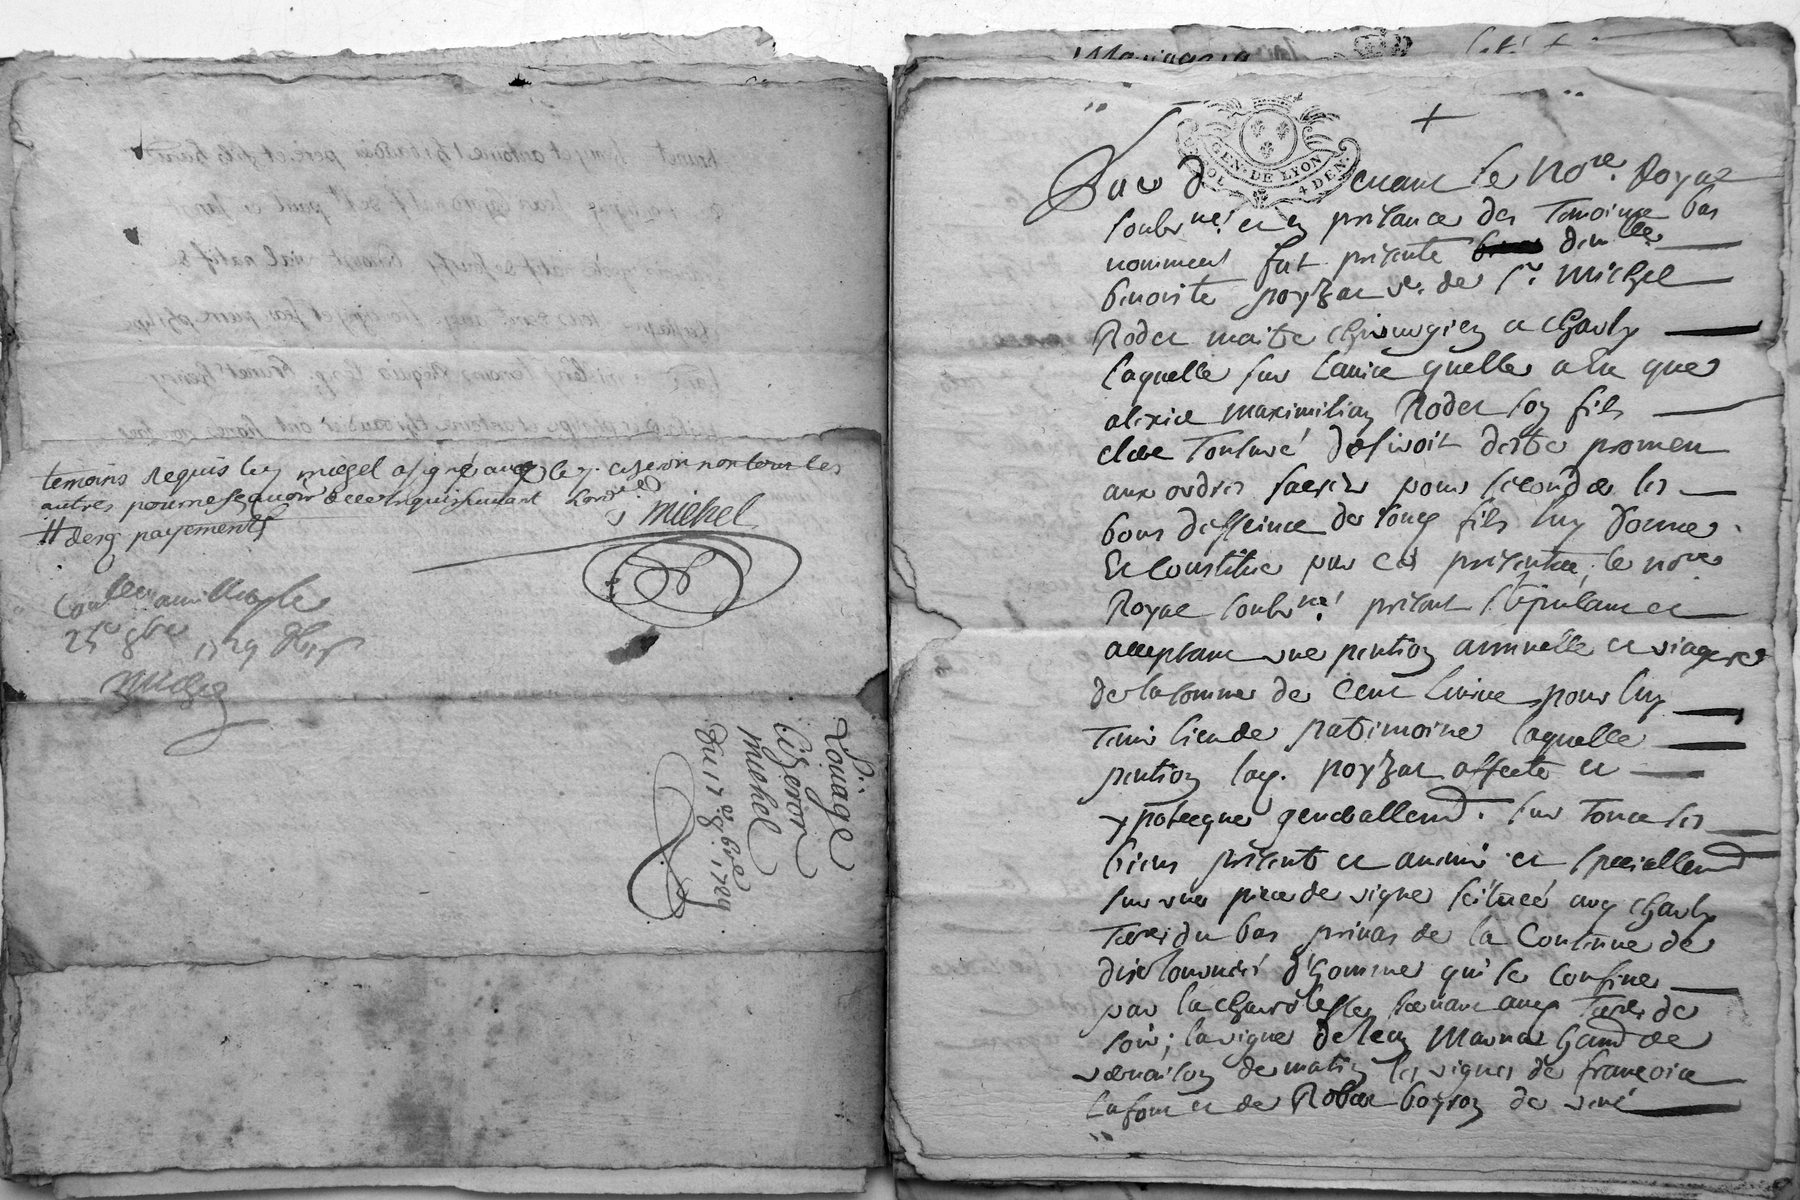 temoins requis ley michel a signé avec ley. ciseron non leur les
autres pour ne scavoir de ce enquis suivant lord.ce
# desq payements
michel
Con.lle a millery le
25e 8bre 1729
Michel
Loüage
Cizeron
michel
Du 17 8bre 1729
GEN. DE LYON
SOL 4 DEN.
Par d evant le No.re Royal
soub.né et en presance des Temoins bas
nommes fut presente dem.lle
benoiste poyzat ve. de sr. Michel
Rodet maitre chirurgien a charly
laquelle sur lavis quelle a Eu que
alexis maximilian Rodet son fils
clerc Tonsuré desiroit destre promeu
aux ordres sacres pour seconder les
bons desseins de son fils luy donne
Et Constitue par ces presentes, le no.re
Royal soub.né present stipulant et
acceptant une pention annuelle et viagere
de la somme de Cent livres pour luy
Tenir lieu de patrimoine laquelle
pention lad. poyzat affecte et
ypoteque generallem.t sur Tous ses
biens presents et avenir et speciallem.t
sur une piece de vigne scituée aud charly
Terre du bas privas de la Contenue de
dix hommes qui se confine
par la
soir; la vigne de Jean Marna
vernaison de matin les vignes de françois
Lafont et de Robert boyron de